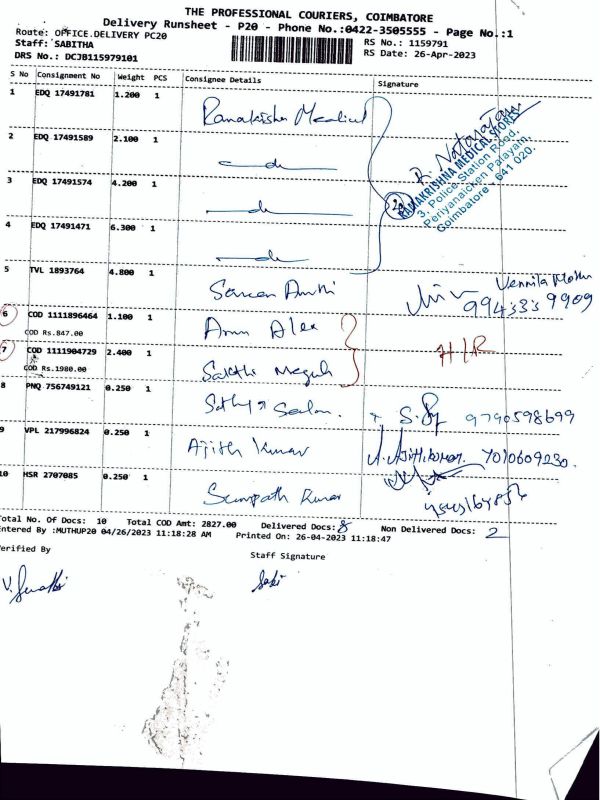 THE PROFESSIONAL COURIERS, COIMBATORE
Delivery Runsheet - P20 - Phone No.:0422-3505555 - Page No.:1
Route: OFFICE.DELIVERY PC20
RS No.: 1159791
Staff: SABITHA
RS Date: 26-Apr-2023
DRS No.: DCJB115979101
S No Consignment No Weight PCS Consignee Details Signature
1 EDQ 17491781 1.200 1 Ramakrishna Medical
2 EDQ 17491589 2.100 1 do
3 EDQ 17491574 4.200 1 do
4 EDQ 17491471 6.300 1 do
R. Natarajan
RAMAKRISHNA MEDICAL STORES
3, Police Station Road,
Periyanaicken Palayam,
Coimbatore - 641 020.
5 TVL 1893764 4.800 1 Vennila
9943339909
6 COD 1111896464 1.100 1 Arun Alex
COD Rs.847.00
7 COD 1111904729 2.400 1 Sakthi H/R
COD Rs.1980.00
8 PNQ 756749121 0.250 1 9790598699
9 VPL 217996824 0.250 1 Ajith Kumar A. Ajithkumar. 7010609230.
10 HSR 2707085 0.250 1 Sampath Kumar
Total No. Of Docs: 10 Total COD Amt: 2827.00 Delivered Docs: 8 Non Delivered Docs: 2
Entered By :MUTHUP20 04/26/2023 11:18:28 AM Printed On: 26-04-2023 11:18:47
Verified By Staff Signature
Sabi